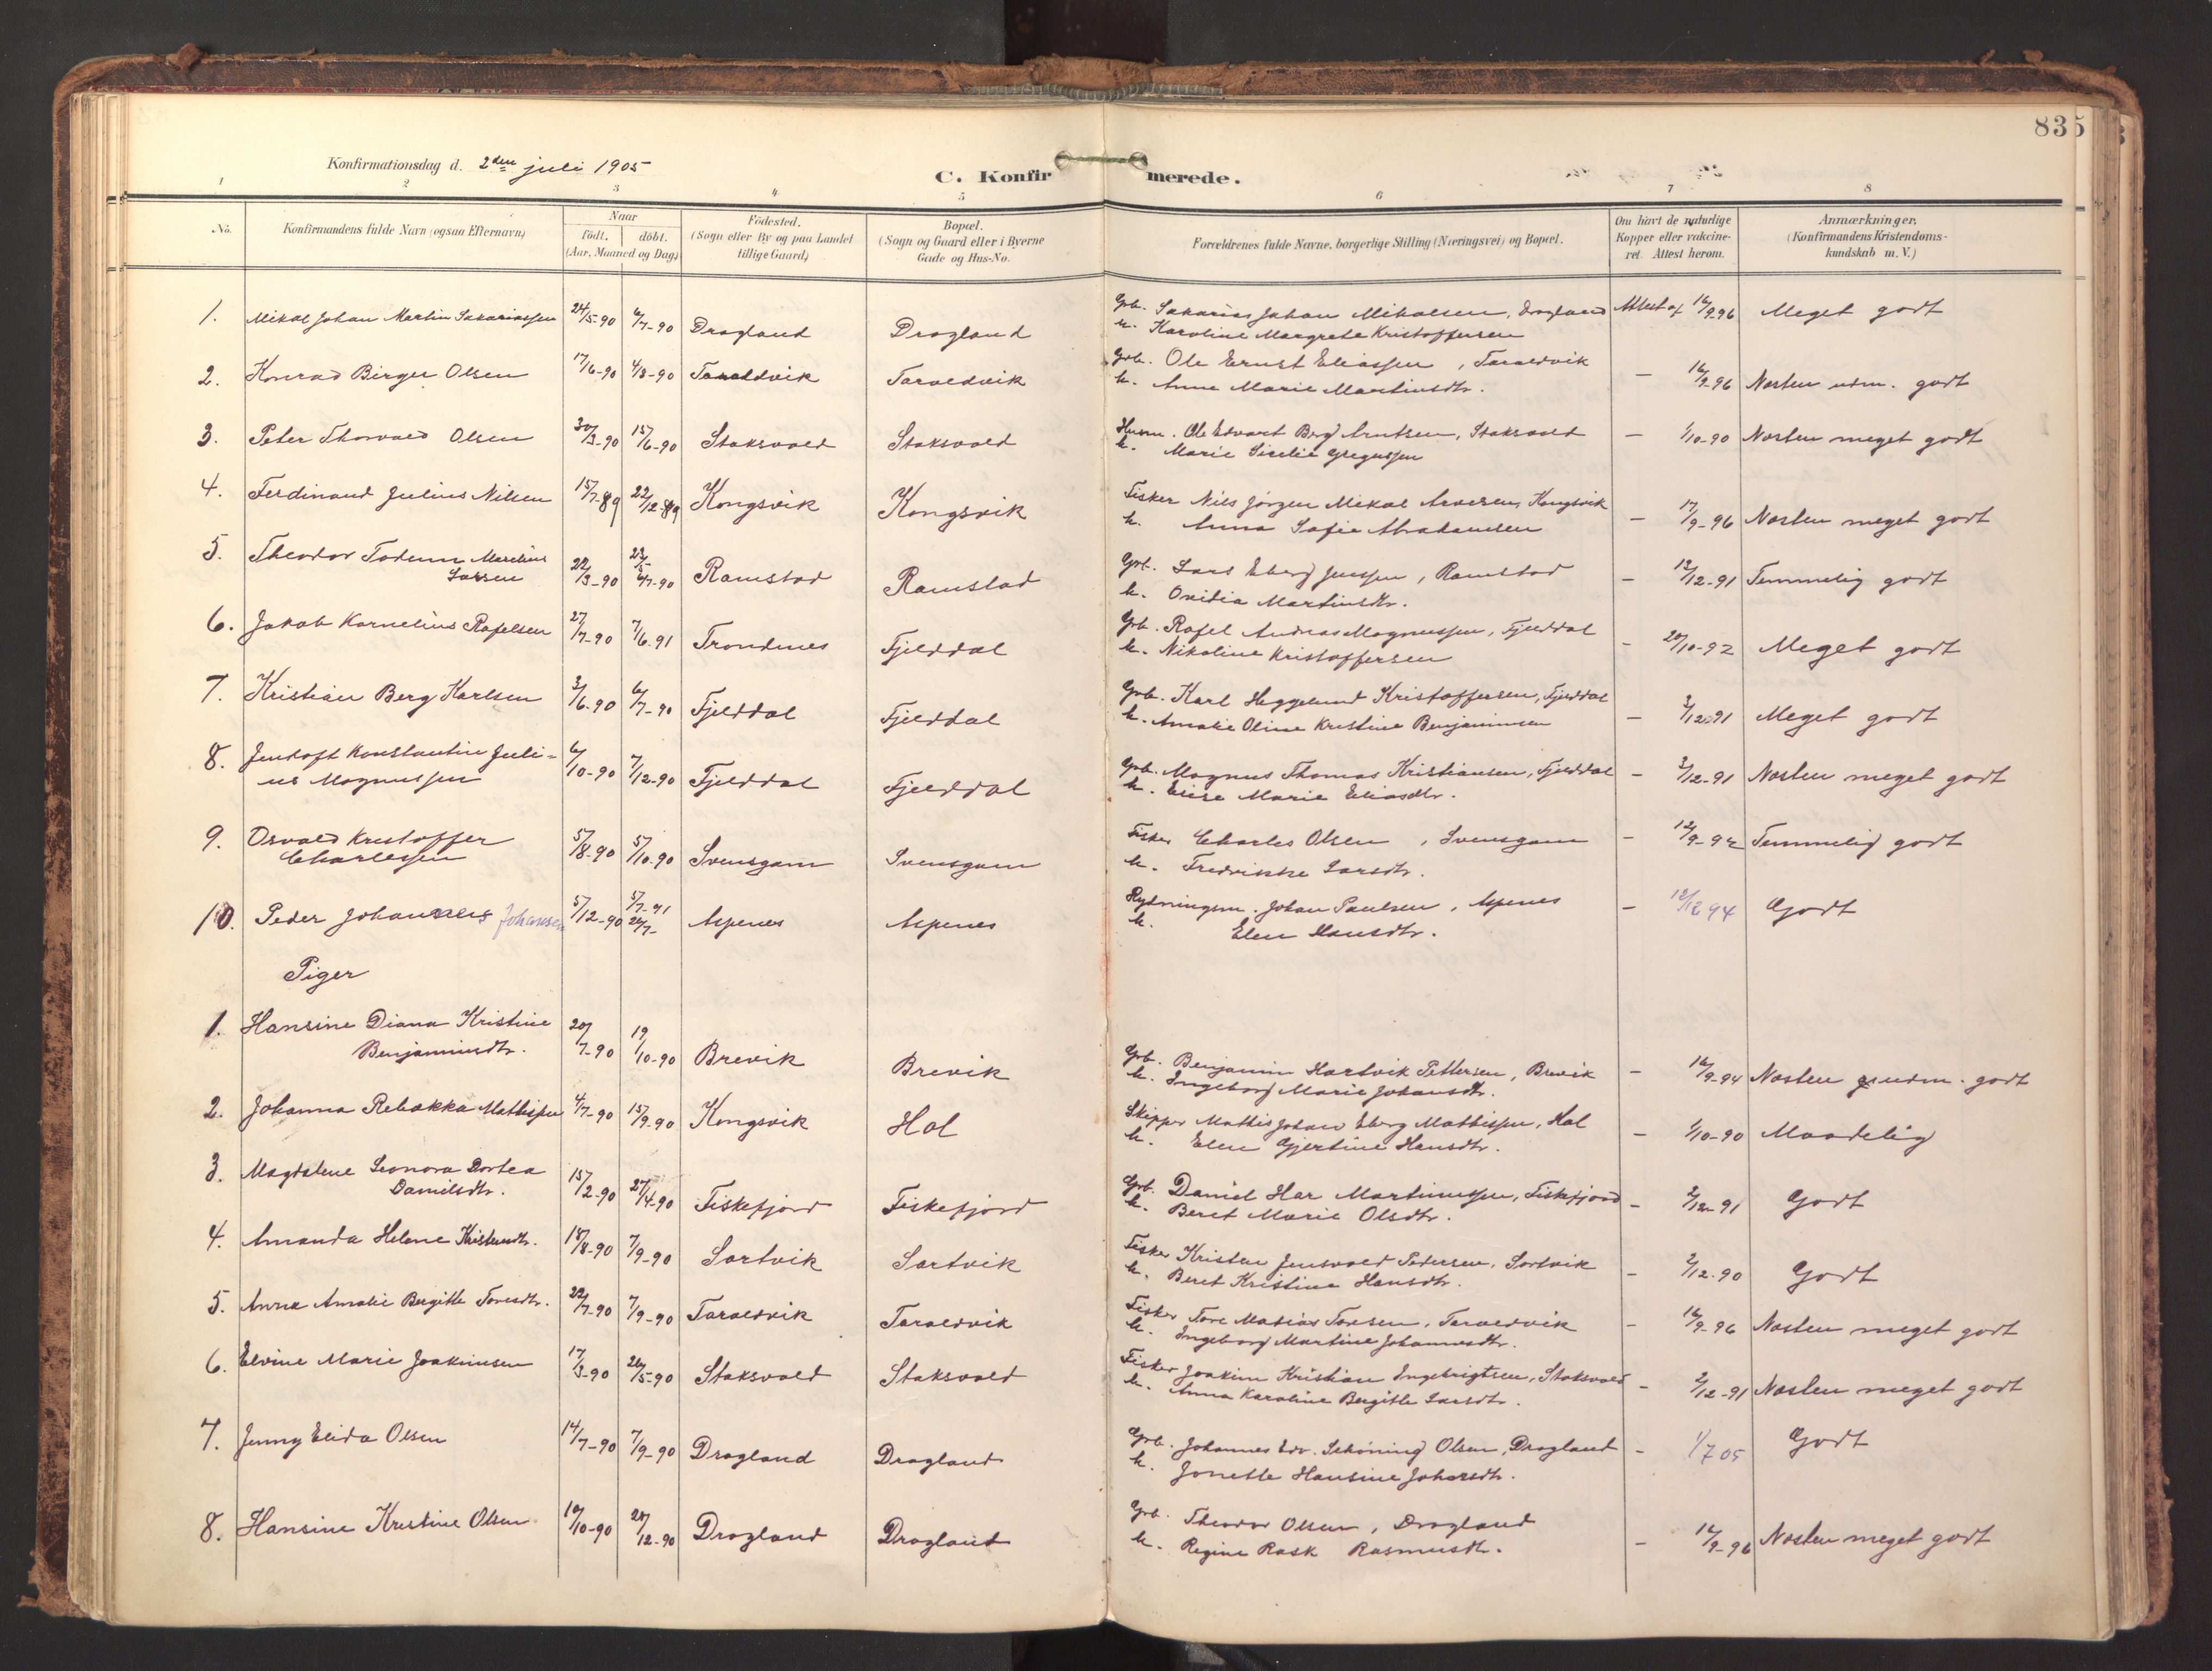 835
Konfirmationsdag d. 2den juli 1905
C. Konfirmerede.
1 2 3 4 5 6 7 8
No.
Konfirmandens fulde Navn (ogsaa Efternavn)
Naar
født. døbt.
(Aar, Maaned og Dag)
Födested.
(Sogn eller By og paa Landet
tillige Gaard)
Bopæl.
(Sogn og Gaard eller i Byerne
Gade og Hus-No.
Forældrenes fulde Navne, borgerlige Stilling (Næringsvei) og Bopæl.
Om havt de naturlige
Kopper eller vakcine-
ret. Attest herom.
Anmærkninger.
(Konfirmandens Kristendoms-
kundskab m. V.)
1. Mikal Johan Martin Sakariassen 24/5-90 6/7-90 Dragland Dragland Grb. Sakarias Johan Mikalsen, Dragland Attest af 16/9-96 Meget godt
h. Karoline Margrete Kristoffersen
2. Konrad Birger Olsen 17/6-90 4/8-90 Taraldvik Taraldvik Grb. Ole Ernst Eliassen, Taraldvik — 16/9-96 Næsten udm. godt
h. Anne Marie Martinsdtr.
3. Peter Thorvald Olsen 30/3-90 15/6-90 Staksvold Staksvold Husm. Ole Edvart Berg Arntsen, Staksvold — 1/10-90 Næsten meget godt
h. Marie Siselie Gregussen
4. Ferdinand Julius Nilsen 15/7-89 22/12-89 Kongsvik Kongsvik Fisker Nils Jørgen Mikal Kongsvik — 17/9-96 Næsten meget godt
h. Anna Sofie Abrahamsen
5. Theodor Marelius 22/3-90 6/7-90 Ramstad Ramstad Grb. Lars Eberg Jenssen, Ramstad — 12/12-91 Temmelig godt
Larsen h. Ovidia Martinsdtr.
6. Jakob Kornelius Rafelsen 27/7-90 7/6-91 Trondenes Fjelddal Grb. Rafel Andreas Magnussen, Fjelddal — 20/10-92 Meget godt
h. Nikoline Kristoffersen
7. Kristian Berg Karlsen 3/6-90 6/7-90 Fjelddal Fjelddal Grb. Karl Heggelund Kristoffersen, Fjelddal — 3/12-91 Meget godt
h. Amalie Oline Kristine Benjaminsen
8. Jentoft Konstantin Juli- 6/10-90 7/12-90 Fjelddal Fjelddal Grb. Magnus Thomas Kristiansen, Fjelddal — 3/12-91 Næsten meget godt
us Magnussen h. Elise Marie Eliasdtr.
9. Osvald Kristoffer 5/8-90 5/10-90 Svensgam Svensgam Fisker Charles Olsen, Svensgam — 12/9-92 Temmelig godt
Charlessen h. Fredrikke Larsdtr.
10. Peder Johannes Johansen 5/12-90 5/7-91 Aspenes Aspenes Rydningsm. Johan Paulsen, Aspenes — 12/12 94 Godt
h. Elen Hansdtr.
Piger
1. Hansine Diana Kristine 20/7-90 19/10-90 Brevik Brevik Grb. Benjamin Hartvik Pettersen, Brevik — 16/9-94 Næsten udm. godt
Benjaminsdtr. h. Ingeborg Marie Johansdtr.
2. Johanna Rebakka Mathissen 4/7-90 15/9-90 Kongsvik Hol Skipper Mathis Johan Eberg Mathissen, Hol — 1/10-90 Maadelig
h. Elen Gjertine Hansdtr.
3. Magdalene Leonora Dortea 15/2-90 27/4-90 Fiskefjord Fiskefjord Grb. Daniel Har Martinussen, Fiskefjord — 2/12-91 Godt
Danielsdtr. h. Beret Marie Olsdtr.
4. Amanda Helene Kristensdtr. 18/8-90 7/9-90 Sortvik Sortvik Fisker Kristen Jensvold Pedersen, Sortvik — 2/12-90 Godt
h. Beret Kristine Hansdtr.
5. Anna Amalie Bergitte Toresdtr. 22/7-90 7/9-90 Taraldvik Taraldvik Fisker Tore Matias Toresen, Taraldvik — 16/9-96 Næsten meget godt
h. Ingeborg Martine Johannesdtr.
6. Elvine Marie Joakimsen 17/3-90 26/5-90 Staksvold Staksvold Fisker Joakim Kristian Ingebrigtsen, Staksvold — 2/12-91 Næsten meget godt
h. Anna Karoline Bergitte Larsdtr.
7. Jenny Elida Olsen 14/7-90 7/9-90 Dragland Dragland Grb. Johannes Edv. Schöning Olsen, Dragland — 1/7 05 Godt
h. Jonette Hansine Johansdtr.
8. Hansine Kristine Olsen 10/10-90 28/12-90 Dragland Dragland Grb. Theodor Olsen, Dragland — 16/9-96 Næsten meget godt
h. Regine Rask Rasmusdtr.